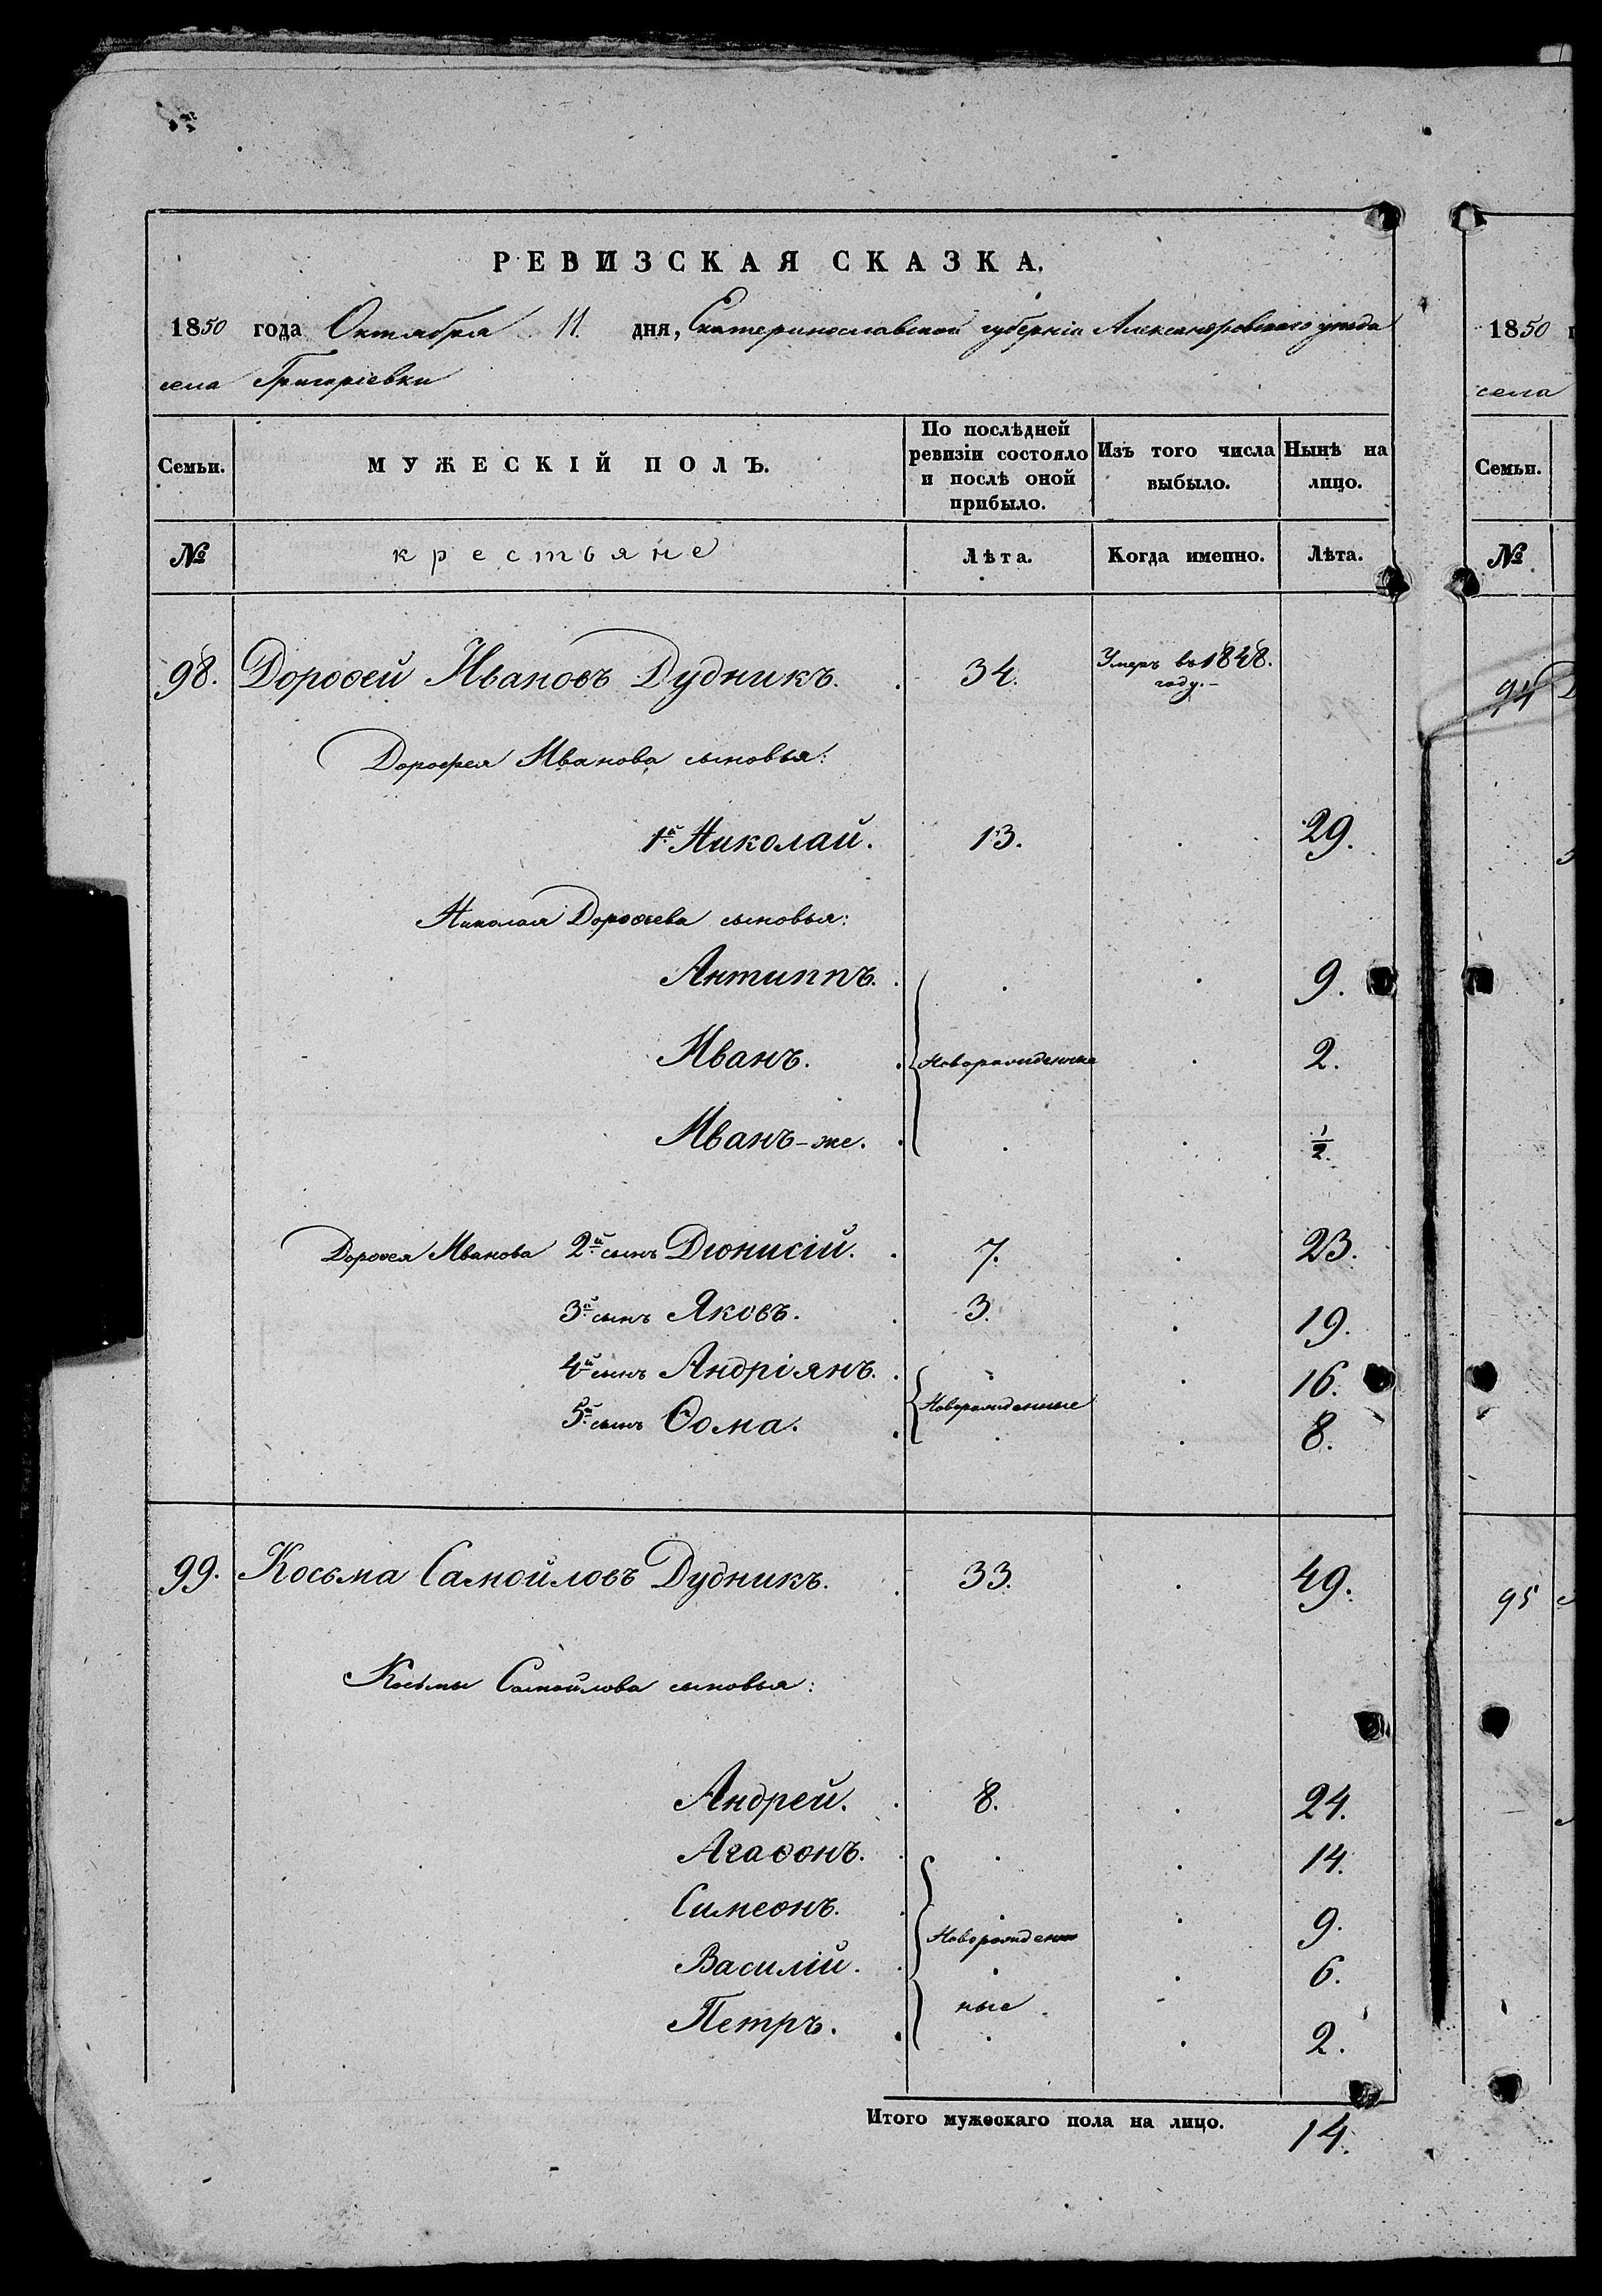 РЕВИЗСКАЯ СКАЗКА.
1850 года Октября 11. дня, Екатеринославской губерніи Александровскаго уезда
села Григоріевки
Семьи.
МУЖЕСКІЙ ПОЛЪ.
По послѣдней ревизіи состояло и послѣ оной прибыло.
Изъ того числа выбыло.
Нынѣ на лицо.
№
крестьяне
Лѣта.
Когда именно.
Лѣта.
98. Дороѳей Ивановъ Дудникъ. 34. Умеръ въ 1848. году.-
Дорофея Иванова сыновья:
1й Николай. 13. 29.
Николая Дороѳеева сыновья:
Антиппъ. 9.
Иванъ. Новорожденные 2.
Иванъ-же. 1/2.
Дороѳея Иванова 2й сынъ Діонисій. 7. 23.
3й сынъ Яковъ. 3. 19.
4й сынъ Андріянъ. 16.
Новорожденные
5й сынъ Ѳома. 8.
99. Косьма Самойловъ Дудникъ. 33. 49.
Косьмы Самойлова сыновья:
Андрей. 8. 24.
Агаѳонъ. 14.
Симеонъ. 9.
Новорожден
Василій. 6.
ные
Петръ. 2.
Итого мужескаго пола на лицо. 14.
1850
села
Семьи.
№
94
95